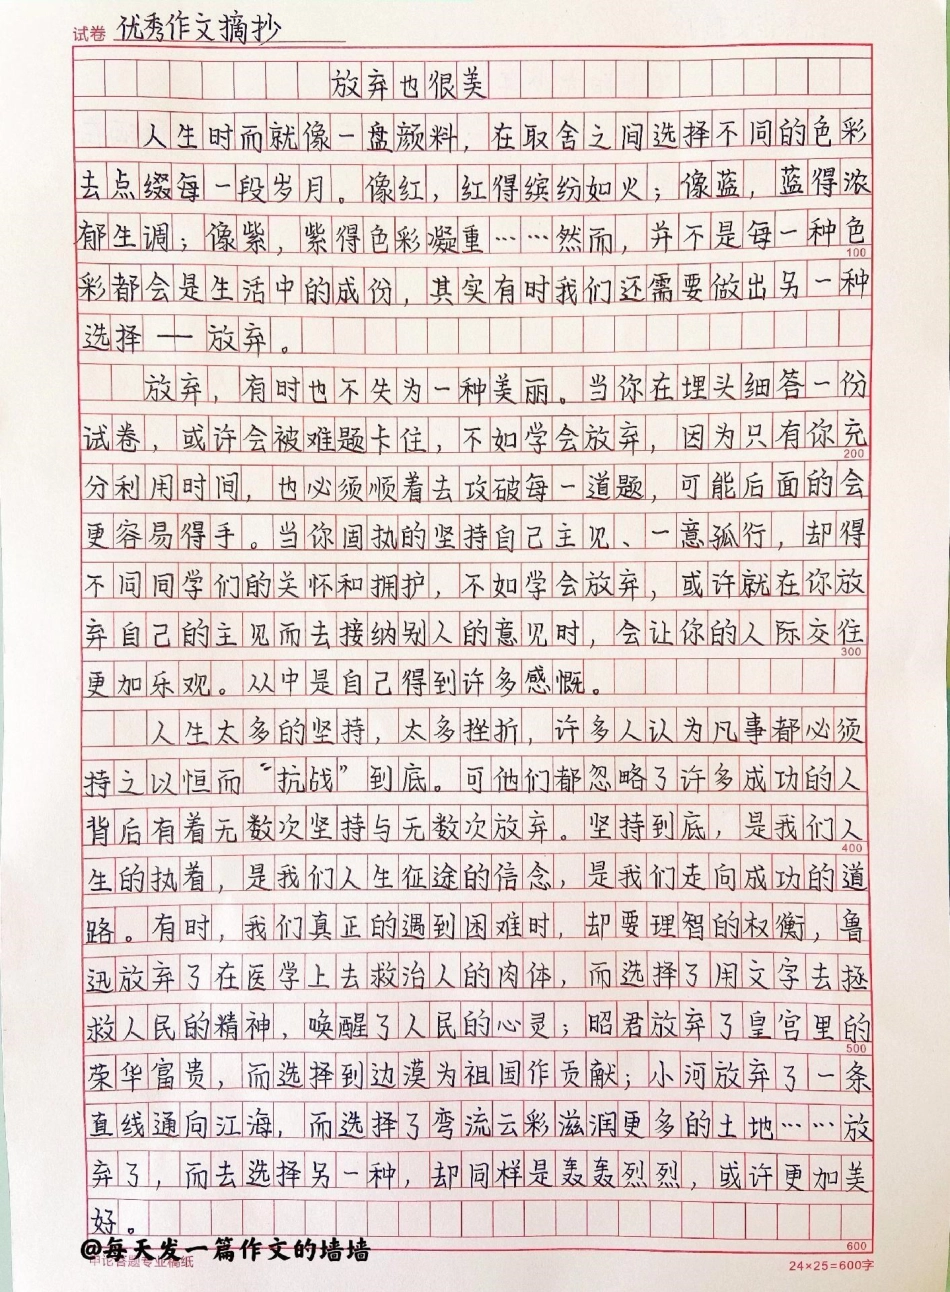 试卷 优秀作文摘抄
放弃也很美
人生时而就像一盘颜料，在取舍之间选择不同的色彩
去点缀每一段岁月。像红，红得缤纷如火；像蓝，蓝得浓
郁生调；像紫，紫得色彩凝重……然而，并不是每一种色
100
彩都会是生活中的成份，其实有时我们还需要做出另一种
选择——放弃。
放弃，有时也不失为一种美丽。当你在埋头细答一份
试卷，或许会被难题卡住，不如学会放弃，因为只有你充
200
分利用时间，也必须顺着去攻破每一道题，可能后面的会
更容易得手。当你固执的坚持自己主见、一意孤行，却得
不同同学们的关怀和拥护，不如学会放弃，或许就在你放
弃自己的主见而去接纳别人的意见时，会让你的人际交往
300
更加乐观。从中是自己得到许多感慨。
人生太多的坚持，太多挫折，许多人认为凡事都必须
持之以恒而“抗战”到底。可他们都忽略了许多成功的人
背后有着无数次坚持与无数次放弃。坚持到底，是我们人
400
生的执着，是我们人生征途的信念，是我们走向成功的道
路。有时，我们真正的遇到困难时，却要理智的权衡，鲁
迅放弃了在医学上去救治人的肉体，而选择了用文字去拯
救人民的精神，唤醒了人民的心灵；昭君放弃了皇宫里的
500
荣华富贵，而选择到边漠为祖国作贡献；小河放弃了一条
直线通向江海，而选择了弯流云彩滋润更多的土地……放
弃了，而去选择另一种，却同样是轰轰烈烈，或许更加美
好。
@每天发一篇作文的墙墙
600
申论答题专业稿纸
24×25=600字